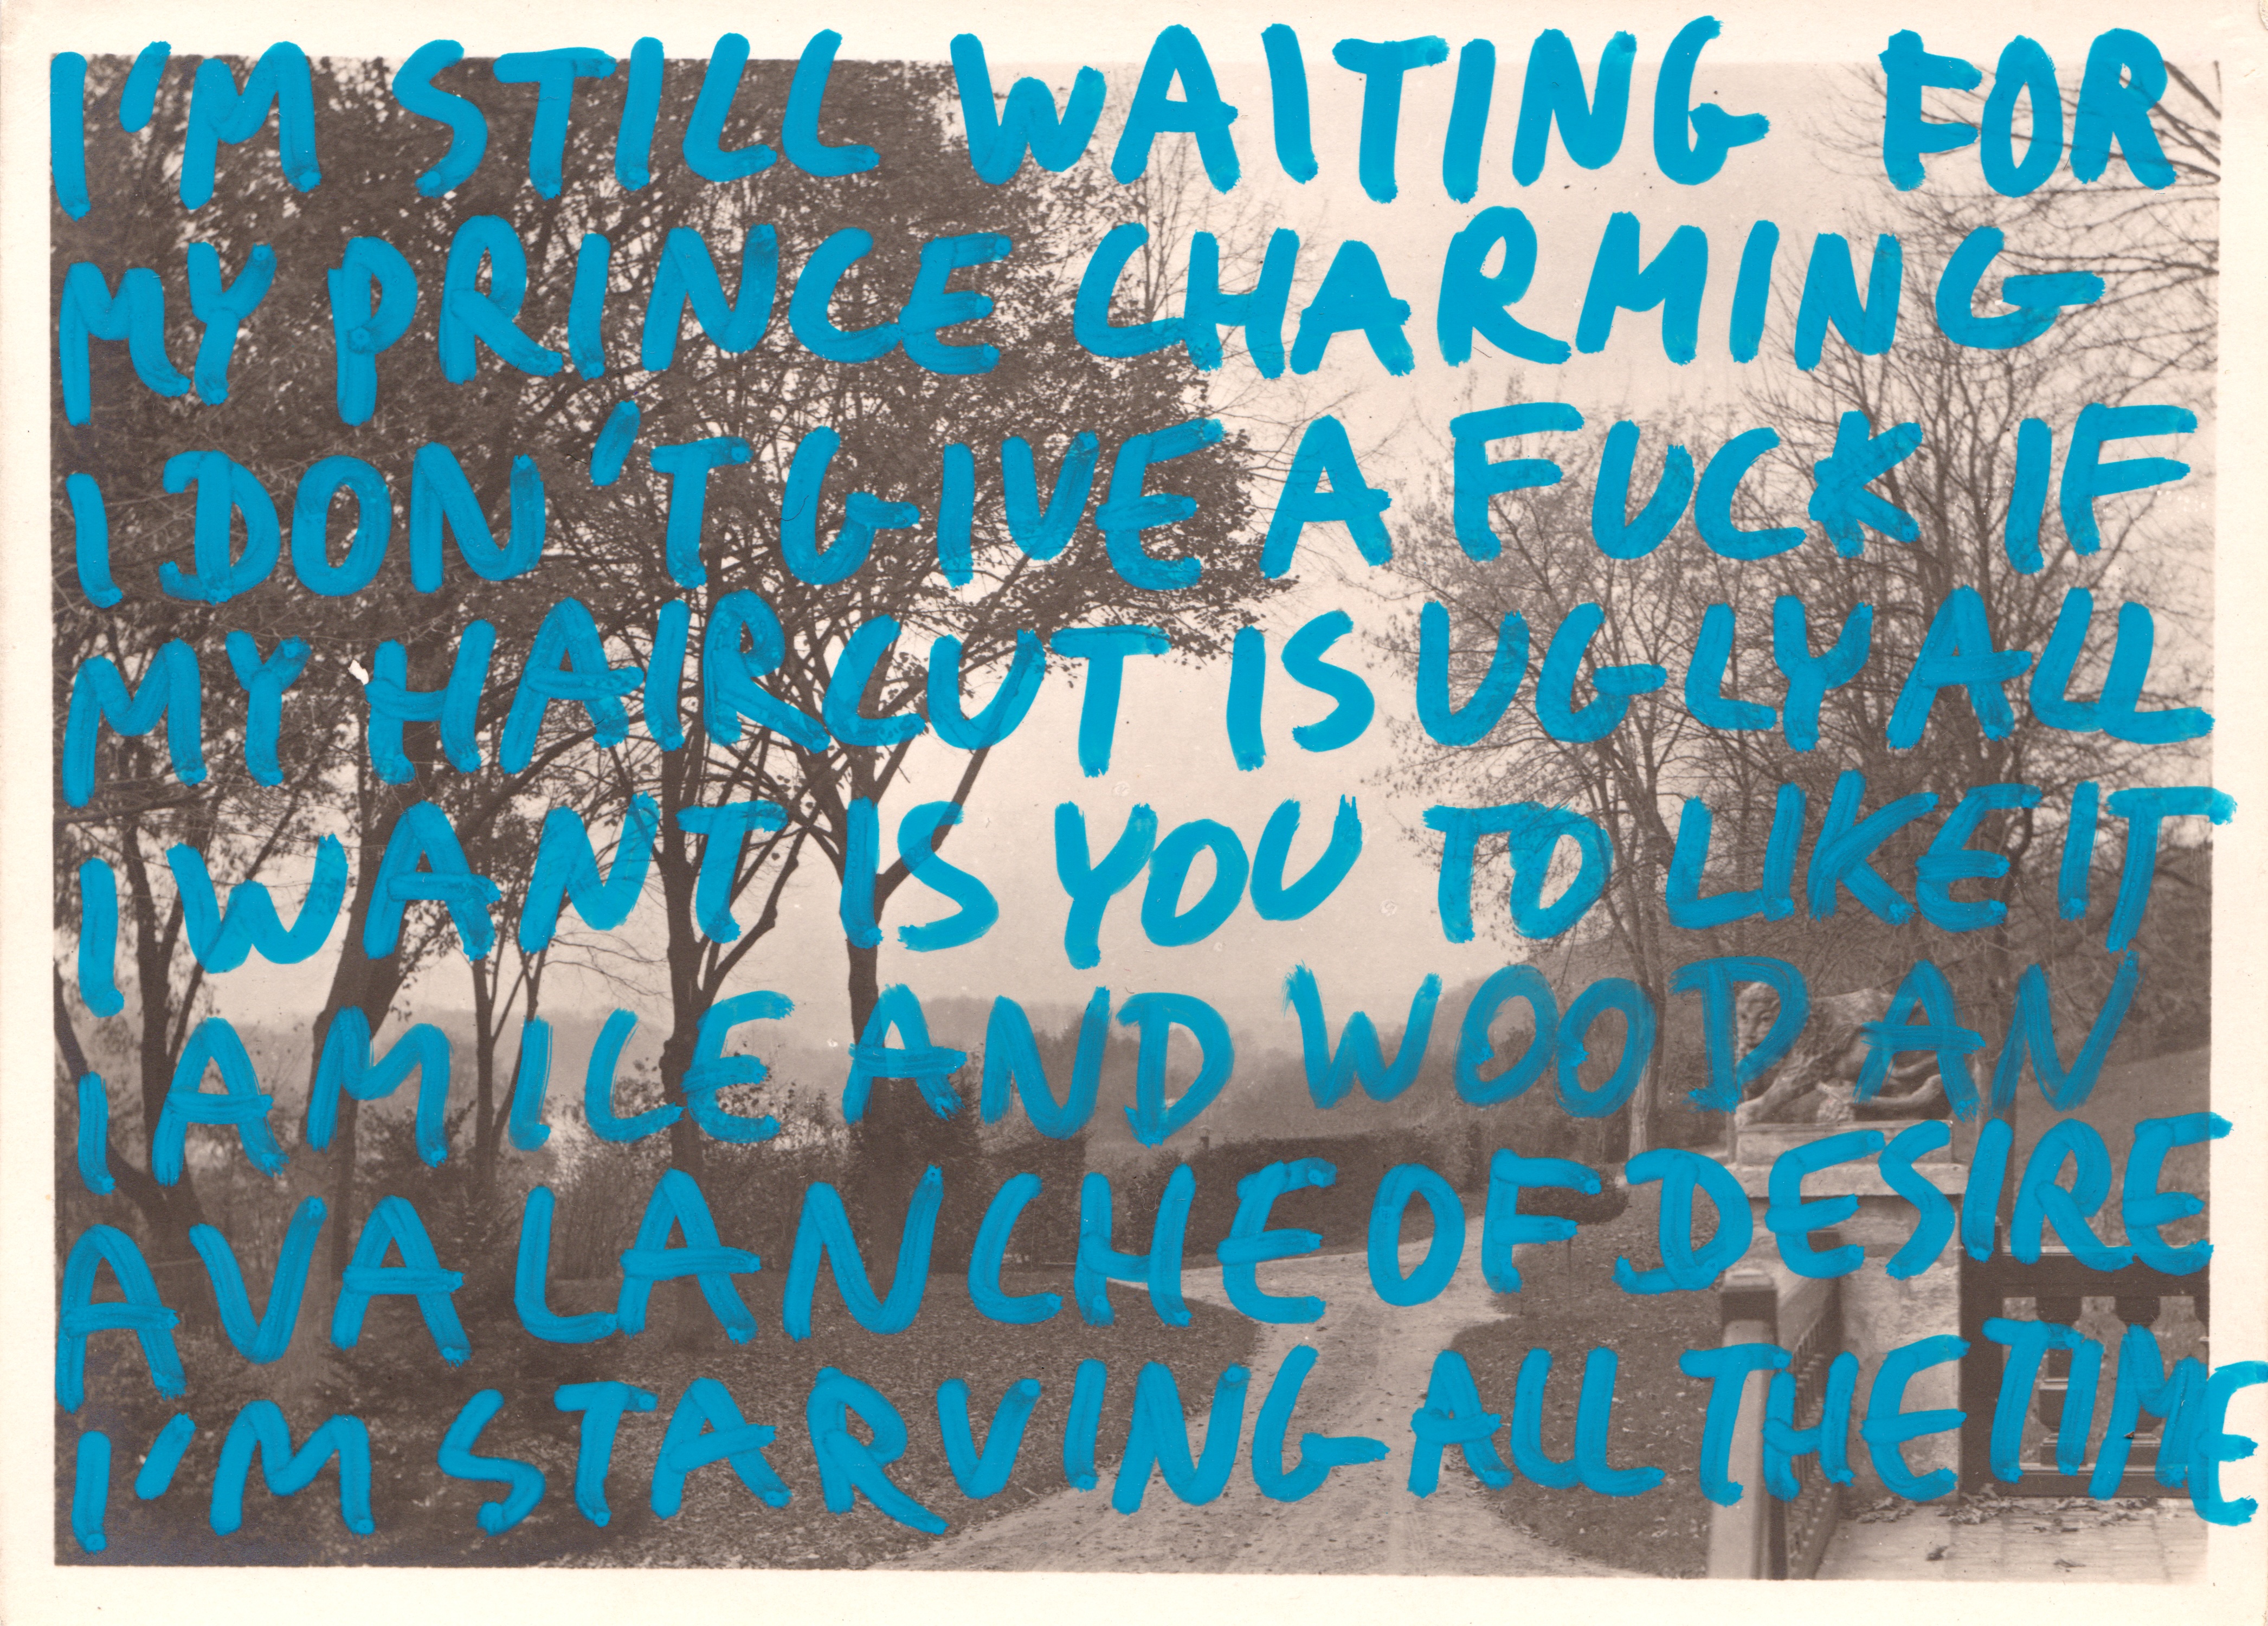 I'M STILL WAITING FOR
MY PRINCE CHARMING
I DON'T GIVE A FUCK IF
MY HAIRCUT IS UGLY ALL
I WANT IS YOU TO LIKE IT
I AM ICE AND WOOD AN
AVALANCHE OF DESIRE
I'M STARVING ALL THE TIME